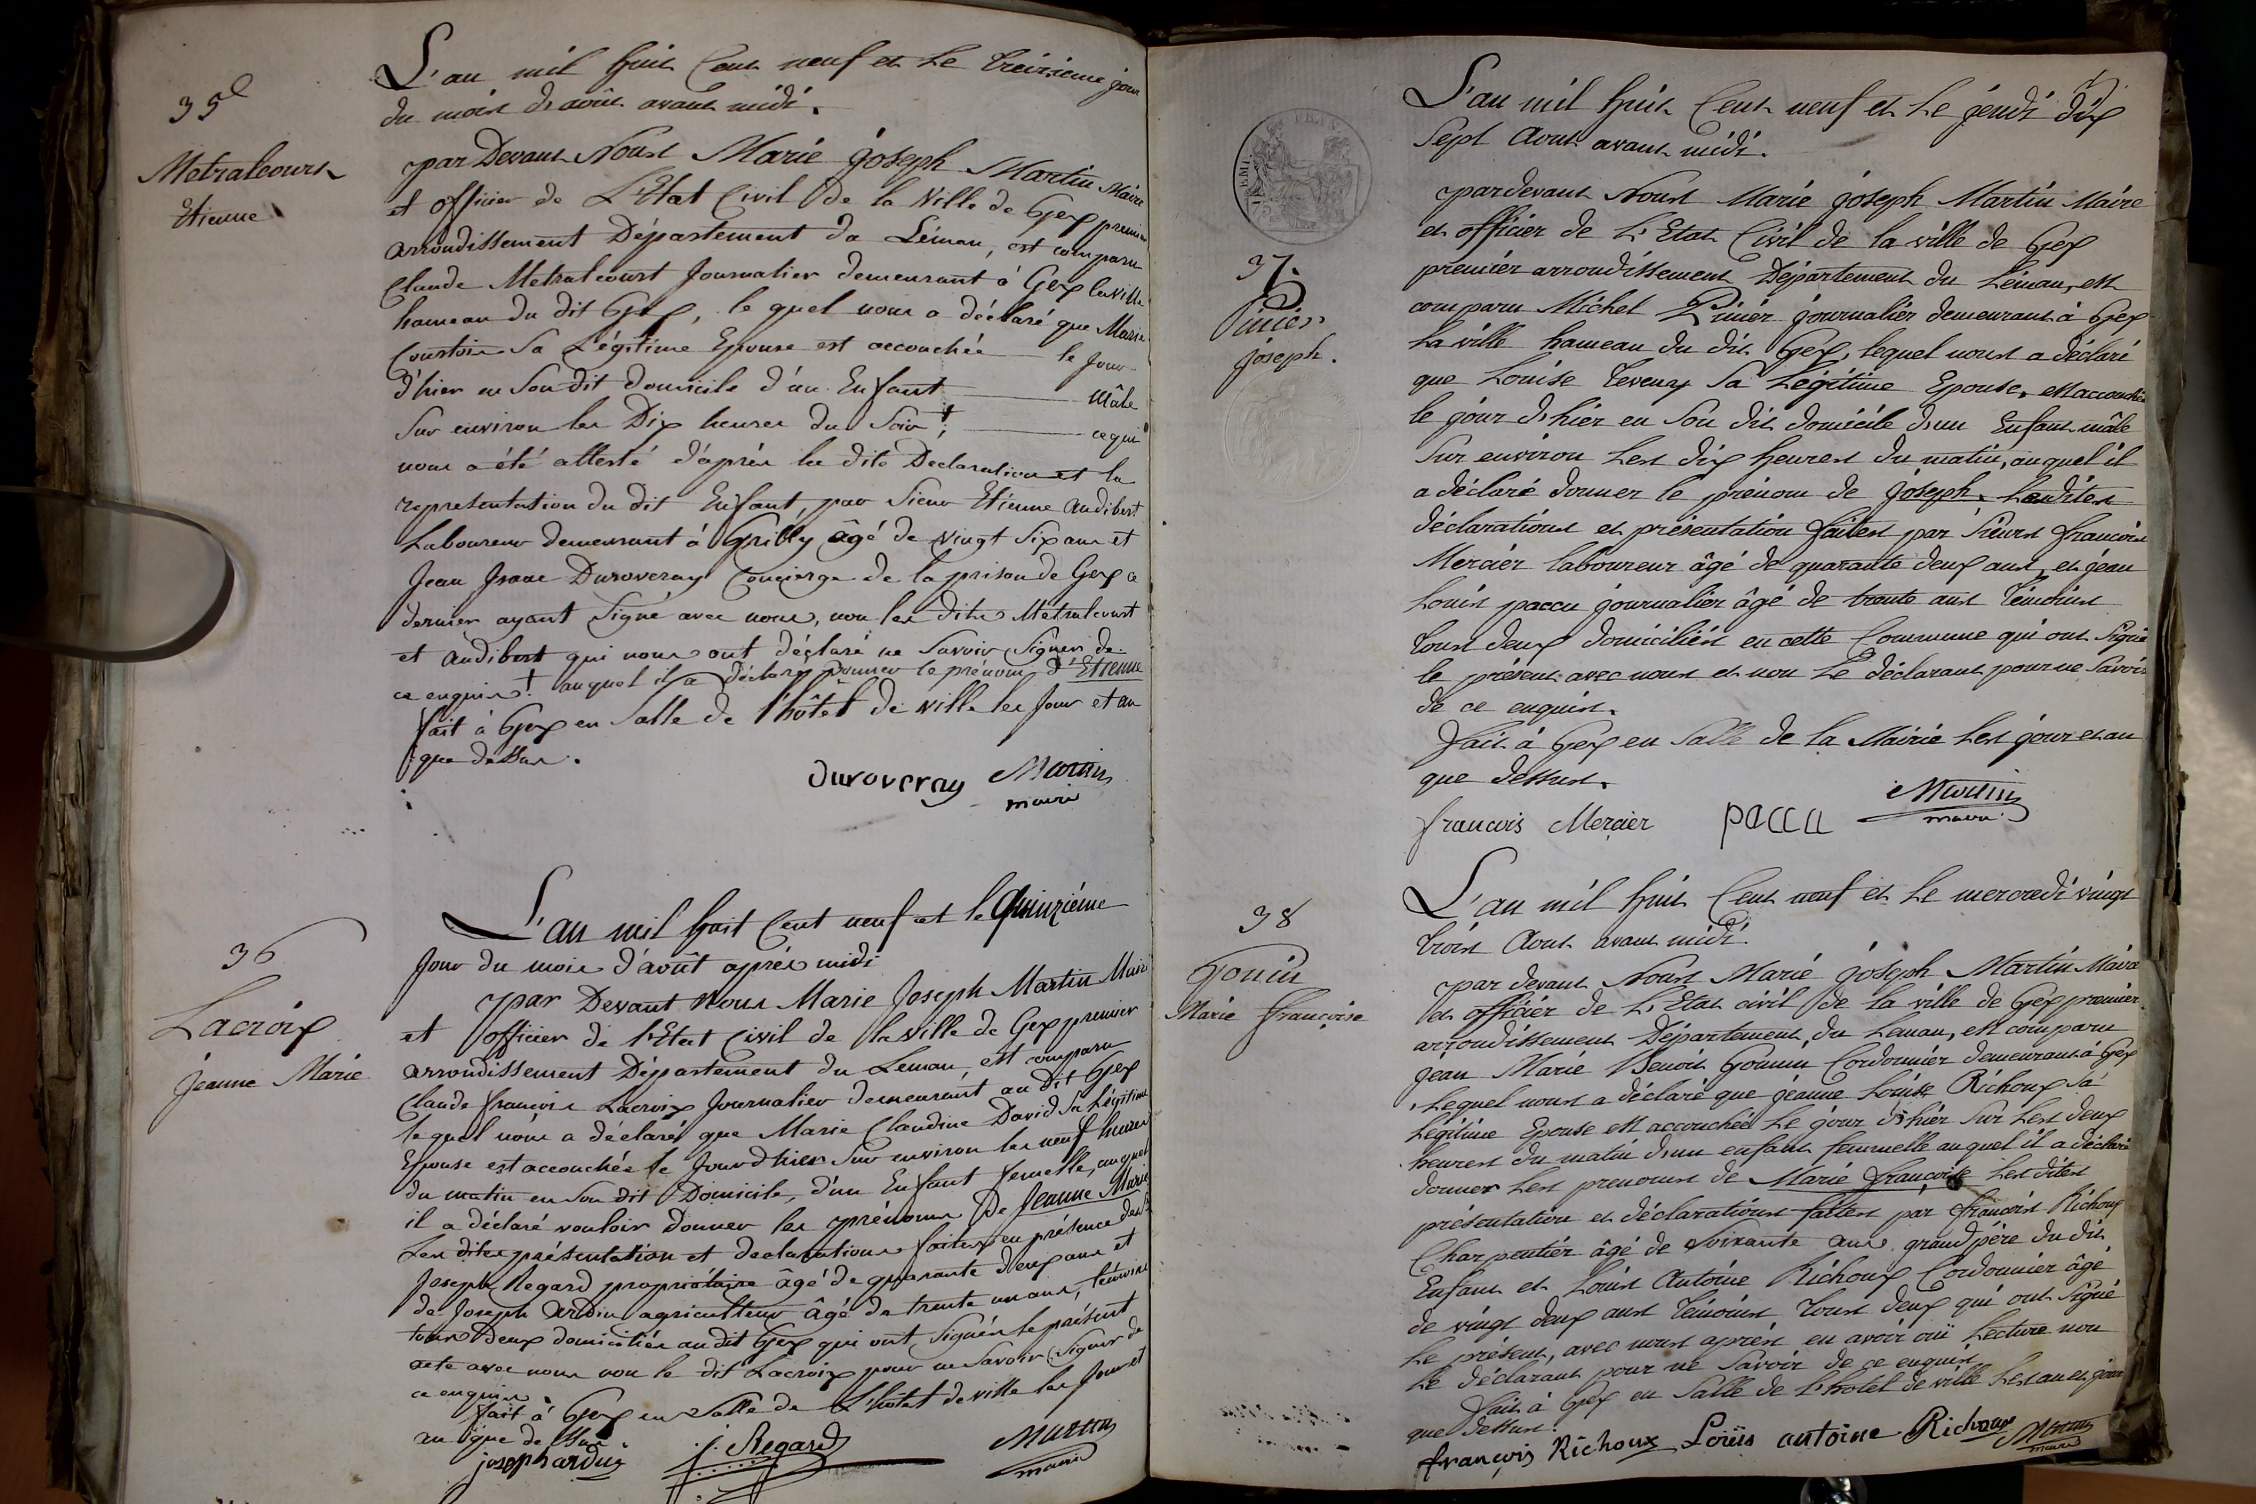 35e
Metralcourt
Etienne
L'an mil huit Cent neuf et le treizieme jour
du mois d'août avant midi.
par Devant Nous Marie joseph Martin Maire
et officier de L'Etat Civil de la Ville de Gex premier
arrondissement Département du Léman, est comparu
Claude Metralcourt Journalier demeurant à Gex la ville
hameau du dit Gex, le quel nous a déclaré que Marie
Sa Légitime Epouse est accouchée le Jour
d'hier en Son dit domicile d'un Enfant Mâle
Sur environ les Dix heures du Soir †; ce qui
nous a été attesté d'après la dite Declaration et la
representation du dit Enfant, par Sieur Etienne audibert
Laboureur demeurant à Grilly âgé de vingt Six ans et
Jean Isaac Duroveray Concierge de la prison de Gex ce
dernier ayant Signé avec nous, non les dits Métralcourt
et audibert qui nous ont déclaré ne Savoir Signer de
ce enquis. † auquel il a déclaré donner le prénom d'Etienne
fait à Gex en Salle de l'hôtel de ville les Jour et an
que dessus.
Duroveray Martin
maire
36
Lacroix
jeanne Marie
L'an mil huit Cent neuf et le Quinziéme
Jour du mois d'août après midi
par Devant Nous Marie Joseph Martin Maire
et officier de l'Etat Civil de la Ville de Gex premier
arrondissement Département du Leman, est comparu
Claude françois Lacroix Journalier demeurant au dit Gex
lequel nous a déclaré que Marie Claudine David Sa Légitime
Epouse est accouchée le Jour d'hier Sur environ les neuf heures
du matin en Son dit Domicile, d'un Enfant femelle, auquel
il a déclaré vouloir donner les prénoms de Jeanne Marie
Les dites présentation et declarations faites en présence de
Joseph Regard propriétaire âgé de quarante deux ans et
de Joseph Arduin agriculteur âgé de trente un ans, témoins
tous Deux domiciliés au dit Gex qui ont Signés le présent
acte avec nous non le dit Lacroix pour ne Savoir Signer de
ce enquis.
fait à Gex en Salle de L'hôtel de ville les Jour et
an que dessus.
J. Regard Martin
maire
37.
Pinier
joseph.
L'an mil huit Cent neuf et Le jeudi dix
Sept Aout avant midi.
pardevant Nous Marie joseph Martin Maire
et officier de L'Etat Civil de la ville de Gex
premier arrondissement Département du Léman, est
comparu Michel Pinier journalier demeurant à Gex
La ville hameau du dit Gex, lequel nous a déclaré
que Louise Sa Légitime Epouse, est accouchée
le jour d'hier en Son dit domicile d'un Enfant mâle
Sur environ Les dix heures du matin, auquel il
a déclaré donner le prénom de joseph. Lesdites
déclarations et présentation faites par Sieurs francois
Mercier laboureur âgé de quarante deux ans, et jean
Louis paccu journalier âgé de trente ans témoins
tous deux domiciliés en cette Commune qui ont Signé
le présent avec nous et non Le déclarant pour ne Savoir
de ce enquis.
fait à Gex en Salle de la Mairie Les jour et an
que dessus.
francois Mercier paccu Martin
maire
38
Gonin
Marie françoise
L'an mil huit Cent neuf et Le mercredi vingt
trois Aout avant midi.
par devant Nous Marie joseph Martin Maire
et officier de L'Etat civil de La ville de Gex premier
arrondissement Département, du Leman, est comparu
jean Marie Benoit Gonin Cordonnier demeurant à Gex
Lequel nous a déclaré que jeanne Louise Richoux Sa
Légitime Epouse est accouchée Le jour d'hier Sur Les deux
heures du matin d'un enfant femmelle auquel il a déclaré
donner Les prenoms de Marie françoise Les dites
présentation et déclarations faites par françois Richoux
Charpentier âgé de Soixante ans grand père du dit
Enfant et Louis Antoine Richoux Cordonnier âgé
de vingt deux ans témoins tous deux qui ont Signé
Le présent, avec nous après en avoir ouï Lecture non
Le déclarant pour ne Savoir de ce enquis
fait à Gex en Salle de L'hotel de ville Les an et jour
que dessus.
françois Richoux Loüis antoine Richoux Martin
maire